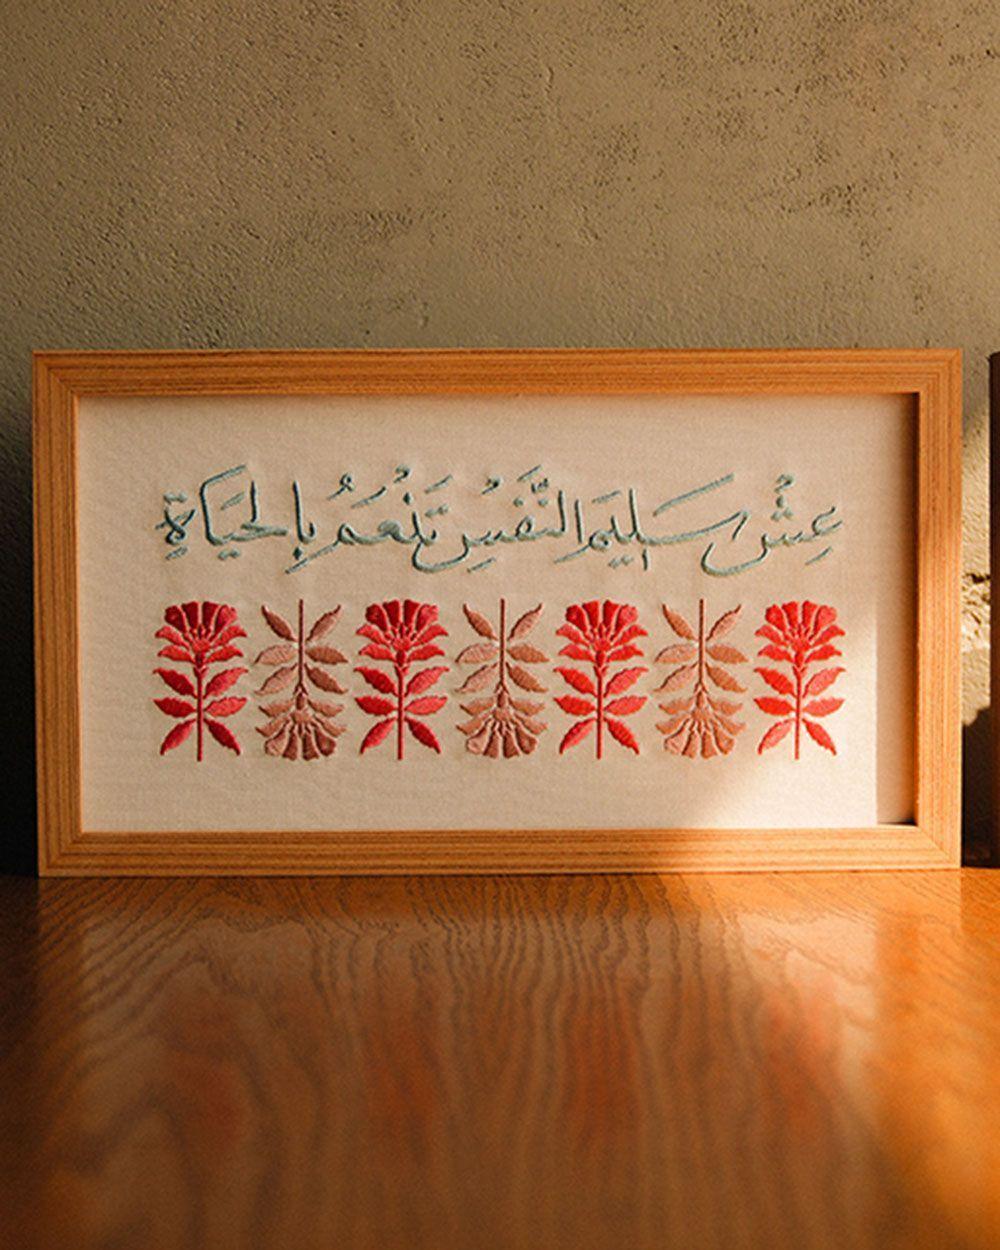 عِشْ سَلِيمَ النَّفْسِ تَنْعَمُ بِالحَيَاةِ